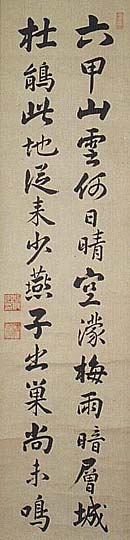 六甲山雲何日晴空濛梅雨暗層城
杜鵑此地従来少燕子出巣尚未鳴